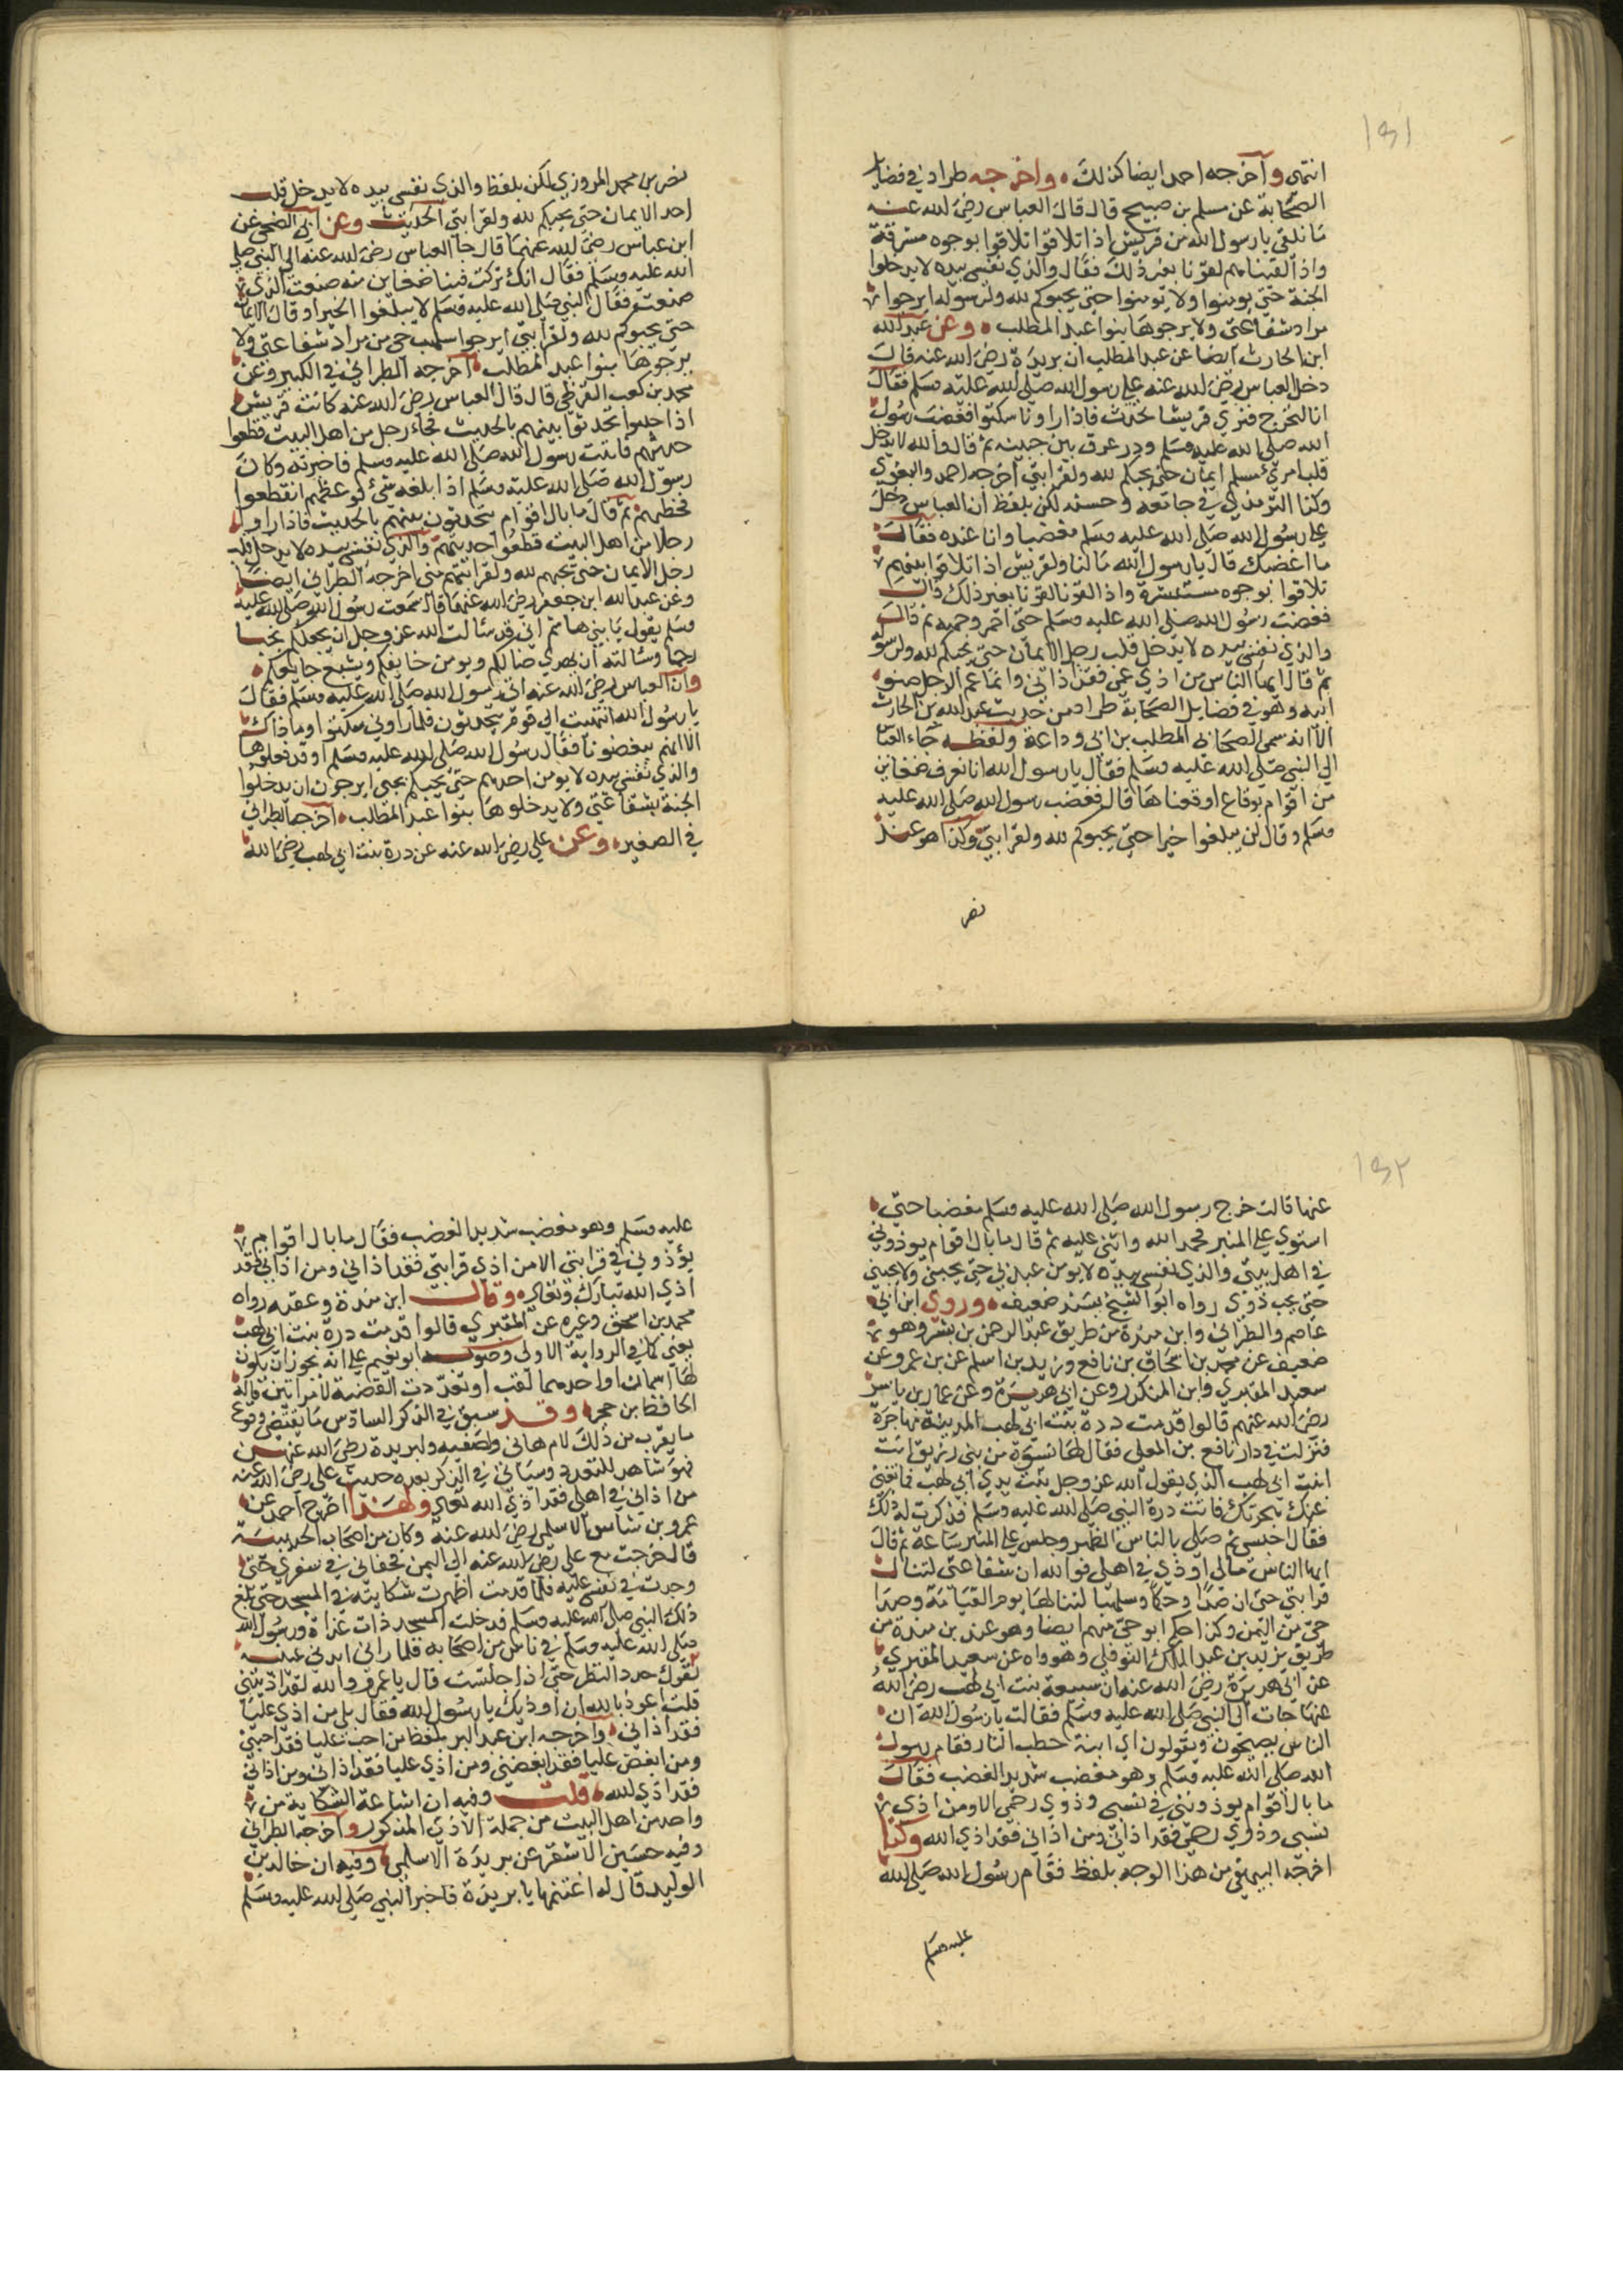 ١٥١
انتهى وأخرجه احمد ايضا كذلك وأخرجه طراد في فضايل
الصحابة عن مسلم بن صبيح قال قال العباس رضي الله عنه
ما نلقى يا رسول الله من قريش اذا تلاقوا تلاقوا بوجوه مشرقة
واذا لقيناهم لقونا بغير ذلك فقال والذي نفسي بيده لا يدخلوا
الجنة حتى يومنوا ولا يومنوا حتى يحبوكم لله ولرسوله ايرجوا
مراد شفاعتي ولا يرجوها بنوا عبد المطلب وعن عبد الله
ابن الحارث ايضا عن عبد المطلب ان بريدة رضي الله عنه قال
دخل العباس رضي الله عنه على رسول الله صلى الله عليه وسلم فقال
انا لنخرج فنري قريشا تحدث فاذا راونا سكتوا فغضب رسول
الله صلى الله عليه وسلم ودر عرق بين جبينه ثم قال والله لا يدخل
قلب امريء مسلم ايمان حتى يحبكم لله ولقرابتي اخرجه احمد والبغوي
وكذا الترمذي في جامعه وحسنه لكن بلفظ ان العباس دخل
على رسول الله صلى الله عليه وسلم مغضبا وانا عنده فقال
ما اغضبك قال يا رسول الله مالنا ولقريش اذا تلاقوا بينهم
تلاقوا بوجوه مستبشرة واذا لقونا لقونا بغير ذلك قال
فغضب رسول الله صلى الله عليه وسلم حتى احمر وجهه ثم قال
والذي نفسي بيده لا يدخل قلب رجل الايمان حتى يحبكم لله ولرسوله
ثم قال ايها الناس من اذي عمي فقد اذاني وانما عم الرجل صنو
ابيه وهو في فضايل الصحابة طراد من حديث عبد الله بن الحارث
الا انه سمى الصحابي المطلب بن ابي وداعة ولفظه جاء العباس
الى النبي صلى الله عليه وسلم فقال يا رسول الله انا نعرف ضغاين
من اقوام بوقايع اوقعناها قال فغضب رسول الله صلى الله عليه
وسلم وقال لن يبلغوا خيرا حتى يحبوكم لله ولقرابتي وكذا هو عند
نصر
نصر بن محمد المروزي لكن بلفظ والذي نفسي بيده لا يدخل قلب
احد الايمان حتى يحبكم لله ولقرابتي الحديث وعن ابي الضحى عن
ابن عباس رضي الله عنهما قال جا العباس رضي الله عنه الى النبي صلى
الله عليه وسلم فقال انك تركت فينا ضغاين منذ صنعت الذي
صنعت فقال النبي صلى الله عليه وسلم لا يبلغوا الخير او قال الايمان
حتى يحبوكم لله ولقرابتي ايرجوا سلهب حي من مراد شفاعتي ولا
يرجوها بنوا عبد المطلب اخرجه الطبراني في الكبير وعن
محمد بن كعب القرظي قال قال العباس رضي الله عنه كانت قريش
اذا جلسوا تحدثوا بينهم بالحديث فجاء رجل من اهل البيت قطعوا
حديثهم فاتيت رسول الله صلى الله عليه وسلم فاخبرته وكان
رسول الله صلى الله عليه وسلم اذا بلغه شيء وعظهم انقطعوا
فخطبهم ثم قال ما بال اقوام يتحدثون بينهم بالحديث فاذا راوا
رجلا من اهل البيت قطعوا حديثهم والذي نفسي بيده لا يدخل قلب
رجل الايمان حتى يحبهم لله ولقرابتهم مني اخرجه الطبراني ايضا
وعن عبد الله ابن جعفر رضي الله عنهما قال سمعت رسول الله صلى الله عليه
وسلم يقول يا بني هاشم اني قد سالت الله عز وجل ان يجعلكم نجبا
رحما وسالته ان يهدي ضالكم ويومن خايفكم ويشبع جايعكم
وان العباس رضي الله عنه اتى رسول الله صلى الله عليه وسلم فقال
يا رسول الله انتهيت الى قوم يتحدثون فلما راوني سكتوا وما ذاك
الا انهم يبغضونا فقال رسول الله صلى الله عليه وسلم اوقد فعلوها
والذي نفسي بيده لا يومن احدهم حتى يحبكم بحبي ايرجون ان يدخلوا
الجنة بشفاعتي ولا يدخلوها بنوا عبد المطلب اخرجه الطبراني
في الصغير وعن علي رضي الله عنه عن درة بنت ابي لهب رضي الله
١٥٢
عنها قالت خرج رسول الله صلى الله عليه وسلم مغضبا حتى
استوي على المنبر فحمد الله واثنى عليه ثم قال ما بال اقوام يوذوني
في اهل بيتي والذي نفسي بيده لا يومن عبد بي حتى يحبني ولا يحبني
حتى يحب ذوي رواه ابو الشيخ بسند ضعيف وروي ابن ابي
عاصم والطبراني وابن مندة من طريق عبد الرحمن بن بشر وهو
ضعيف عن محمد بن اسحاق بن نافع وزيد بن اسلم عن بن عمر وعن
سعيد المقبري وابن المنكدر وعن ابي هريرة وعن عمار بن ياسر
رضي الله عنهم قالوا قدمت درة بنت ابي لهب المدينة مهاجرة
فنزلت في دار نافع بن المعلى فقال لها نسوة من بني زريق انت
ابنت ابي لهب الذي يقول الله عز وجل تبت يدي ابي لهب فما تغني
عنك هجرتك فاتت درة النبي صلى الله عليه وسلم فذكرت له ذلك
فقال اجلسي ثم صلى بالناس الظهر وجلس على المنبر ساعة ثم قال
ايها الناس مالي اوذي في اهلي فوالله ان شفاعتي لتنال
قرابتي حتى ان صدا وحكما وسلهبا لتنالها يوم القيامة وصدا
حي من اليمن وكذا حكم ابو حي منهم ايضا وهو عند بن مندة من
طريق يزيد بن عبد الملك النوفلي وهو واه عن سعيد المقبري
عن ابي هريرة رضي الله عنه ان سبيعة بنت ابي لهب رضي الله
عنها جات الى النبي صلى الله عليه وسلم فقالت يا رسول الله ان
الناس يصيحون ويقولون اي ابنة حطب النار فقام رسول
الله صلى الله عليه وسلم وهو مغضب شديد الغضب فقال
ما بال اقوام يوذونني في نسبي وذوي رحمي الا ومن اذي
نسبي وذوي رحمي فقد اذاني ومن اذاني فقد اذي الله وكذا
اخرجه البيهقي من هذا الوجه بلفظ فقام رسول الله صلى الله
عليه وسلم
عليه وسلم وهو مغضب شديد الغضب فقال ما بال اقوام
يؤذوني في قرابتي الا من اذي قرابتي فقد اذاني ومن اذاني فقد
اذي الله تبارك وتعالى وقال ابن مندة وعقبه رواه
محمد بن اسحق وغيره عن المقبري قالوا قدمت درة بنت ابي لهب
يعني كما في الرواية الاولى وصوب ابو نعيم على انه يجوز ان يكون
لها اسمان او احدهما لقب او تعددت القصة لامراتين قاله
الحافظ بن حجر وقد سبق في الذكر السادس ما يقتضي وقوع
ما يقرب من ذلك لام هاني ولصفيه ولبريدة رضي الله عنهن
فهو شاهد للتعدد وسياتي في الذكر بعده حديث علي رضي الله عنه
من اذاني في اهلي فقد اذي الله تعالى ولهذا اخرج احمد عن
عمرو بن شاس الاسلمي رضي الله عنه وكان من اصحاب الحديبية
قال خرجت مع علي رضي الله عنه الى اليمن فجفاني في سفري حتى
وجدت في نفسي عليه فلما قدمت اظهرت شكايته في المسجد حتى بلغ
ذلك النبي صلى الله عليه وسلم فدخلت المسجد ذات غداة ورسول الله
صلى الله عليه وسلم في ناس من اصحابه فلما راني ابدني عينيه
يقول حدد النظر حتى اذا جلست قال يا عمرو والله لقد اذيتني
قلت اعوذ بالله ان اوذيك يا رسول الله فقال بلى من اذي عليا
فقد اذاني واخرجه ابن عبد البر بلفظ من احب عليا فقد احبني
ومن ابغض عليا فقد ابغضني ومن اذي عليا فقد اذاني ومن اذاني
فقد اذي الله قلت وفيه ان اشاعة الشكاية من
واحد من اهل البيت من جملة الاذي المذكور واخرجه الطبراني
وفيه حسين الاشقر عن بريدة الاسلمي وفيه ان خالد بن
الوليد قال له اغتنمها يا بريدة فاخبر النبي صلى الله عليه وسلم